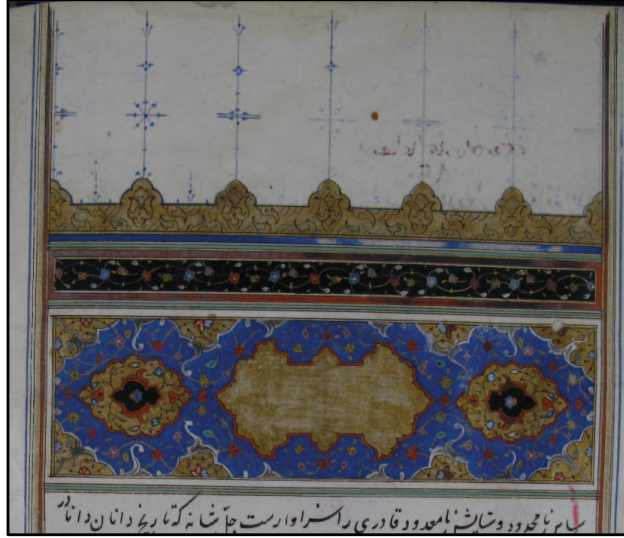 سپاس نامحدود و ستایش نامعدود قادری را سزاوارست جلّ شانه که تاریخ دانان دانا در